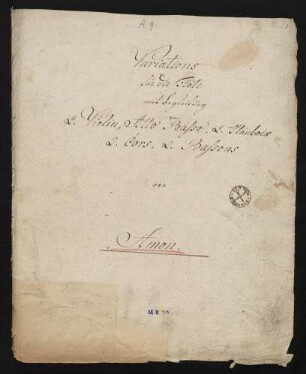 A. 9.
Variations
für die Flöte
mit Begleitung
2. Violin, Alto Basso, 2. Hautbois
2. Cors, 2. Bassons
von
Amon.